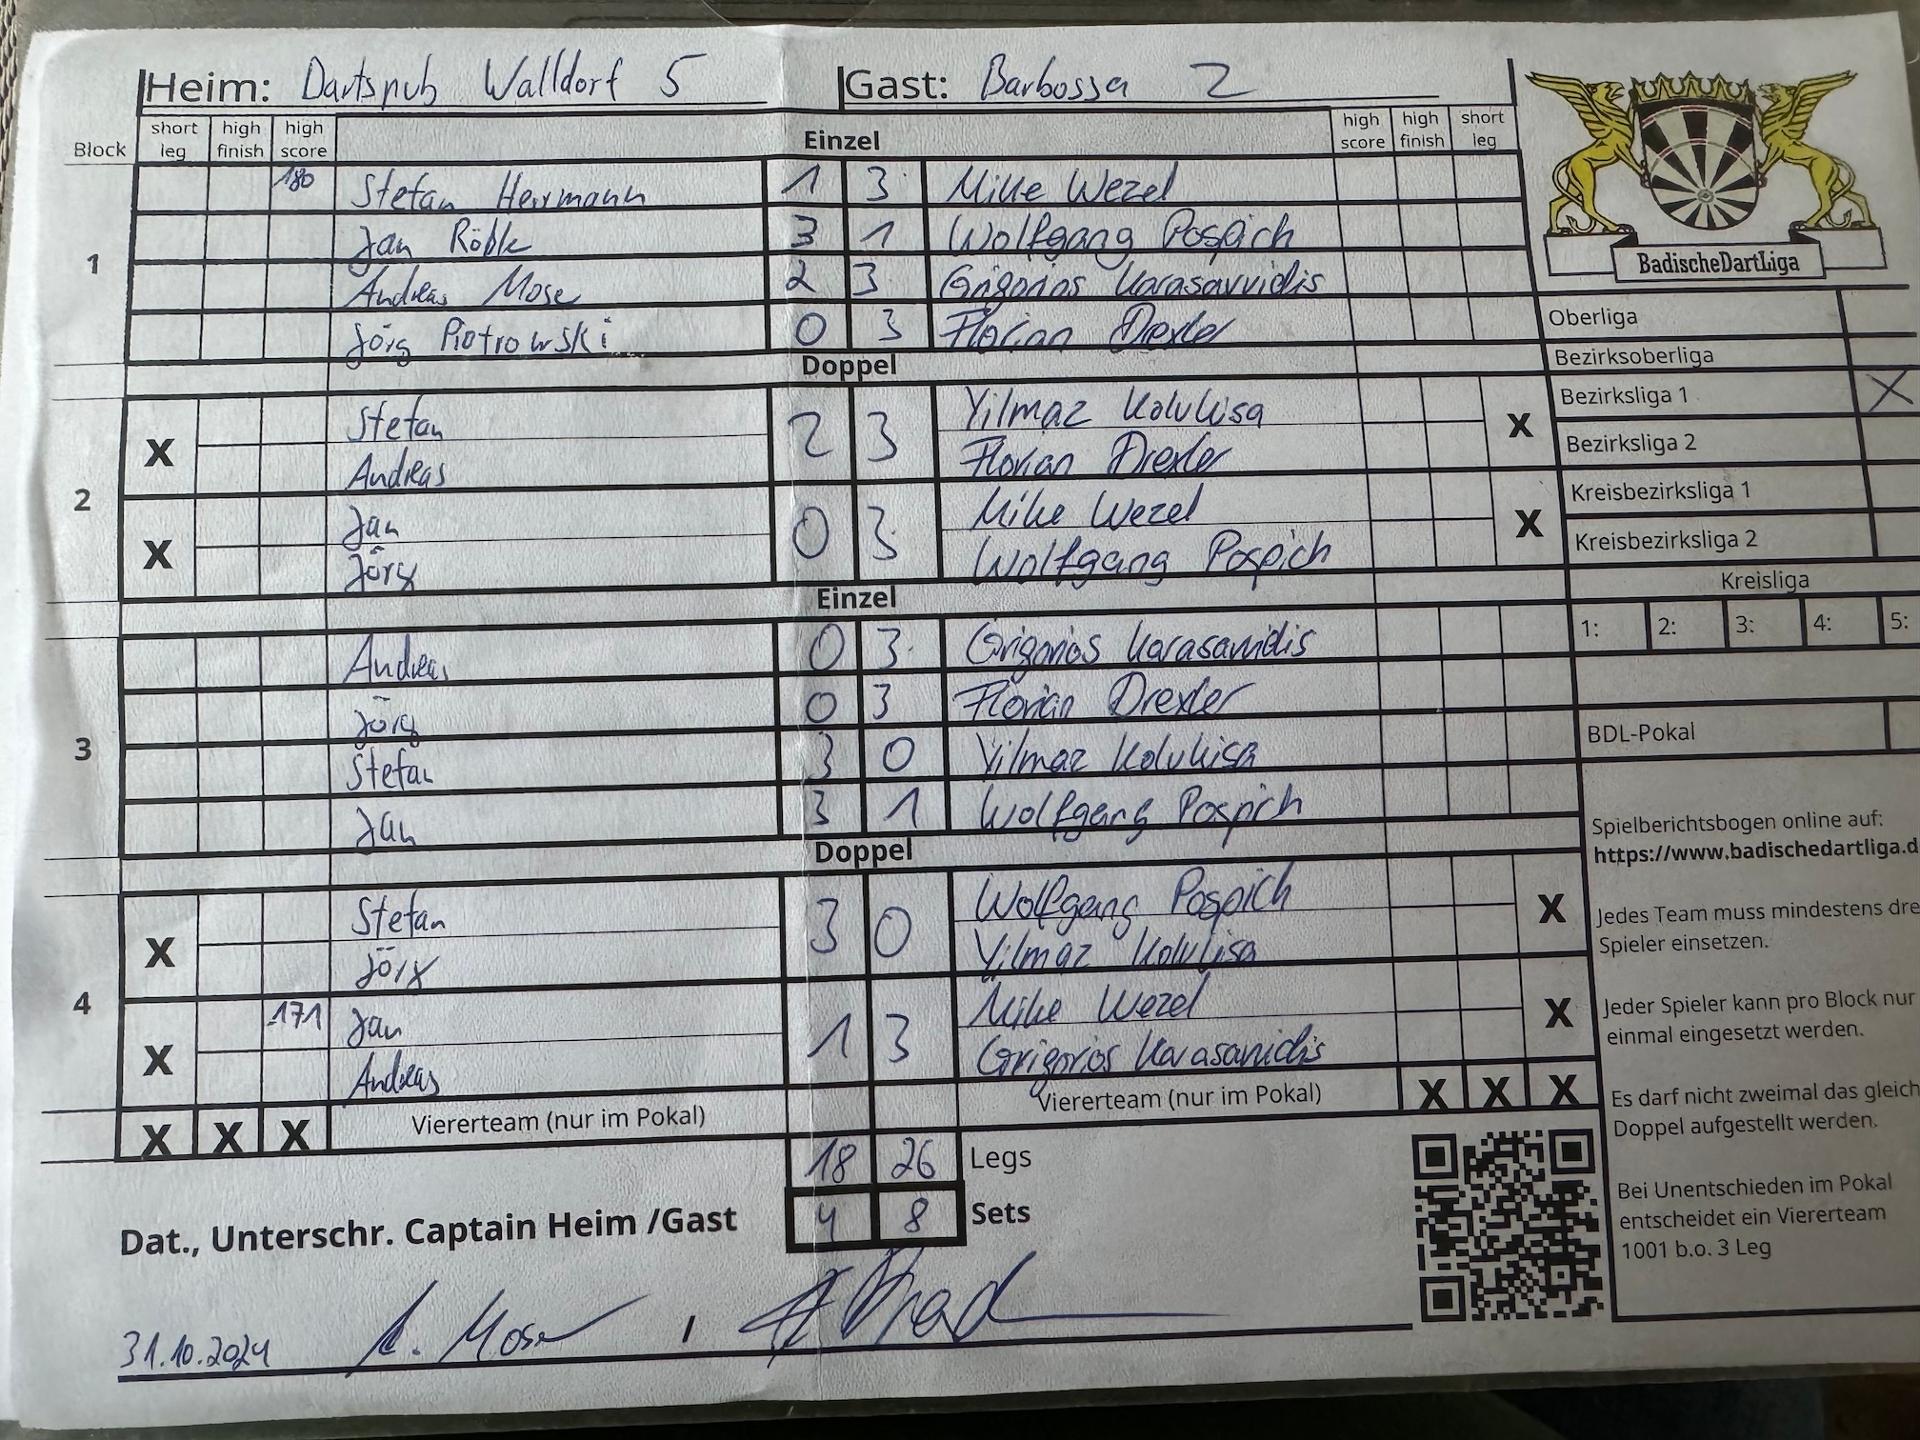 Heim: Dartspub Walldorf 5 Gast: Barbossa 2
Block short leg high finish high score Einzel high score high finish short leg
1
180 Stefan Herrmann 1 3 Mike Wezel
Jan Röble 3 1 Wolfgang Pospich
Andreas Mose 2 3 Grigorios Karasavvidis
Jörg Piotrowski 0 3 Florian Drexler
Doppel
2
X Stefan 2 3 Yilmaz Kolukisa X
Andreas Florian Drexler
X Jan 0 3 Mike Wezel X
Jörg Wolfgang Pospich
Einzel
3
Andreas 0 3 Grigorios Karasavvidis
Jörg 0 3 Florian Drexler
Stefan 3 0 Yilmaz Kolukisa
Jan 3 1 Wolfgang Pospich
Doppel
4
X Stefan 3 0 Wolfgang Pospich X
Jörg Yilmaz Kolukisa
X 171 Jan 1 3 Mike Wezel X
Andreas Grigorios Karasavidis
X X X Viererteam (nur im Pokal) Viererteam (nur im Pokal) X X X
18 26 Legs
4 8 Sets
Dat., Unterschr. Captain Heim /Gast
31.10.2024 A. Mose /
BadischeDartLiga
Oberliga
Bezirksoberliga
Bezirksliga 1 X
Bezirksliga 2
Kreisbezirksliga 1
Kreisbezirksliga 2
Kreisliga
1: 2: 3: 4: 5:
BDL-Pokal
Spielberichtsbogen online auf:
https://www.badischedartliga.d
Jedes Team muss mindestens dre
Spieler einsetzen.
Jeder Spieler kann pro Block nur
einmal eingesetzt werden.
Es darf nicht zweimal das gleich
Doppel aufgestellt werden.
Bei Unentschieden im Pokal
entscheidet ein Viererteam
1001 b.o. 3 Leg